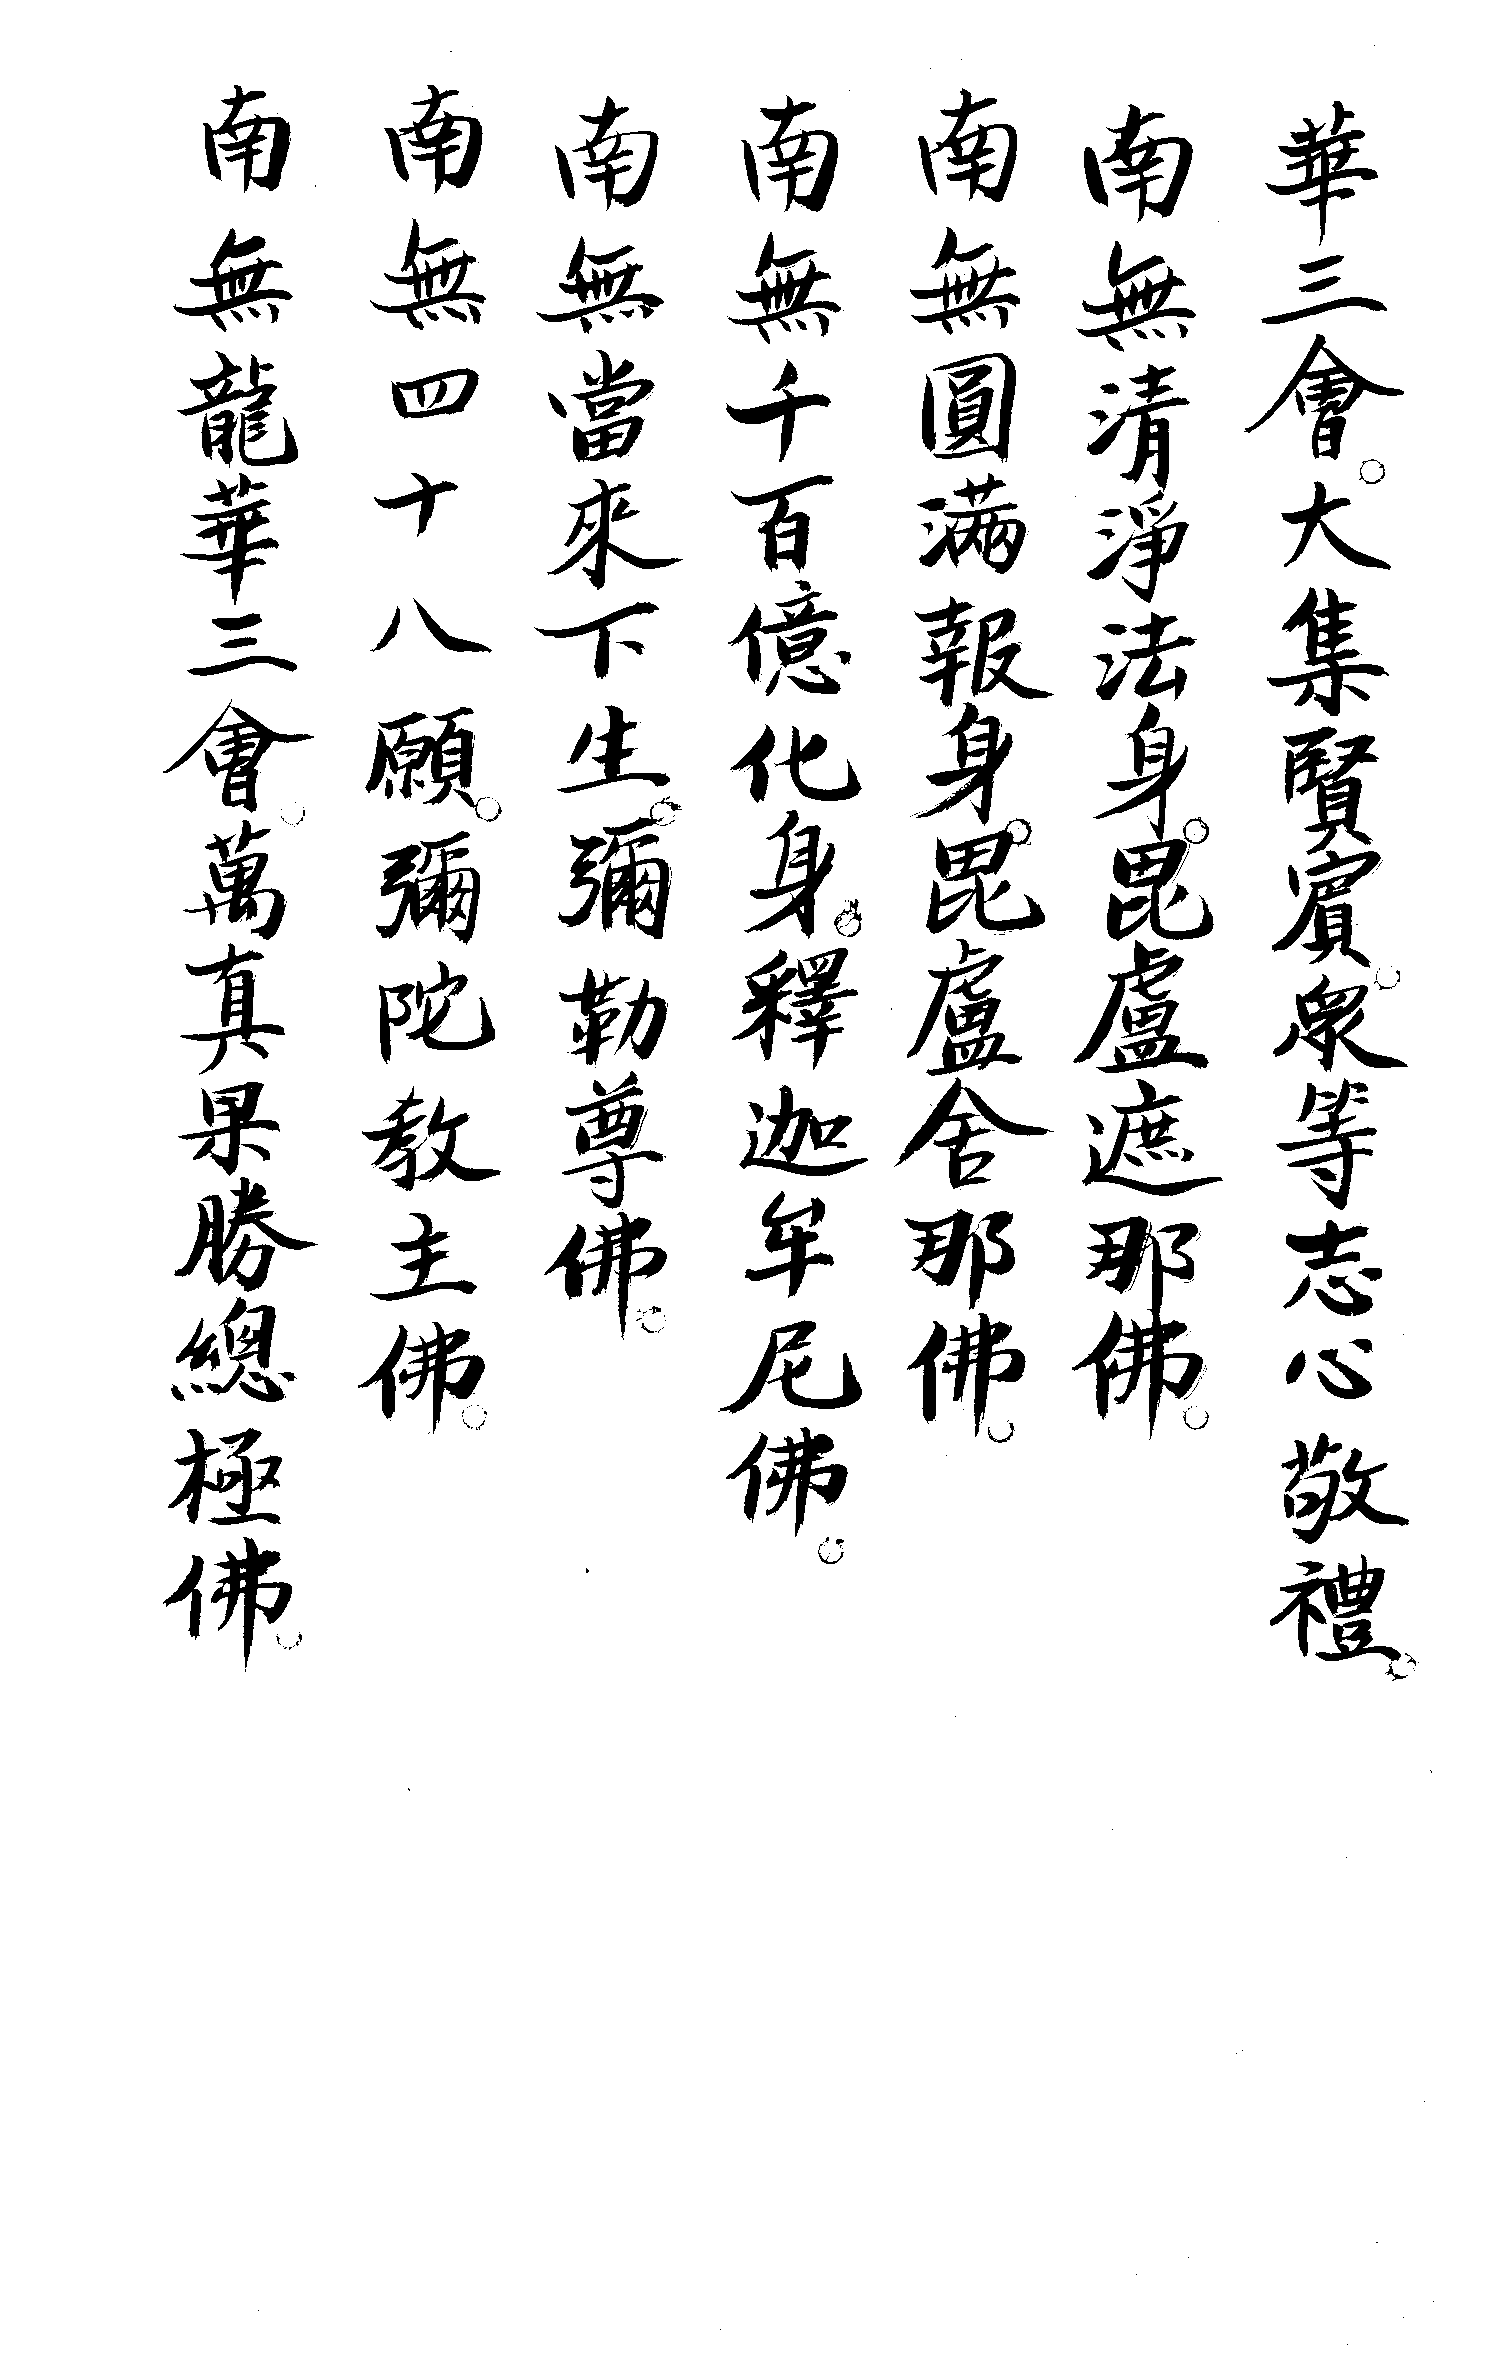 華三會。大集賢賓。衆等志心敬禮。
南無清淨法身。毘盧遮那佛。
南無圓滿報身。毘盧舍那佛。
南無千百億化身。釋迦牟尼佛。
南無當來下生。彌勒尊佛。
南無四十八願。彌陀教主佛。
南無龍華三會。萬真果勝總極佛。